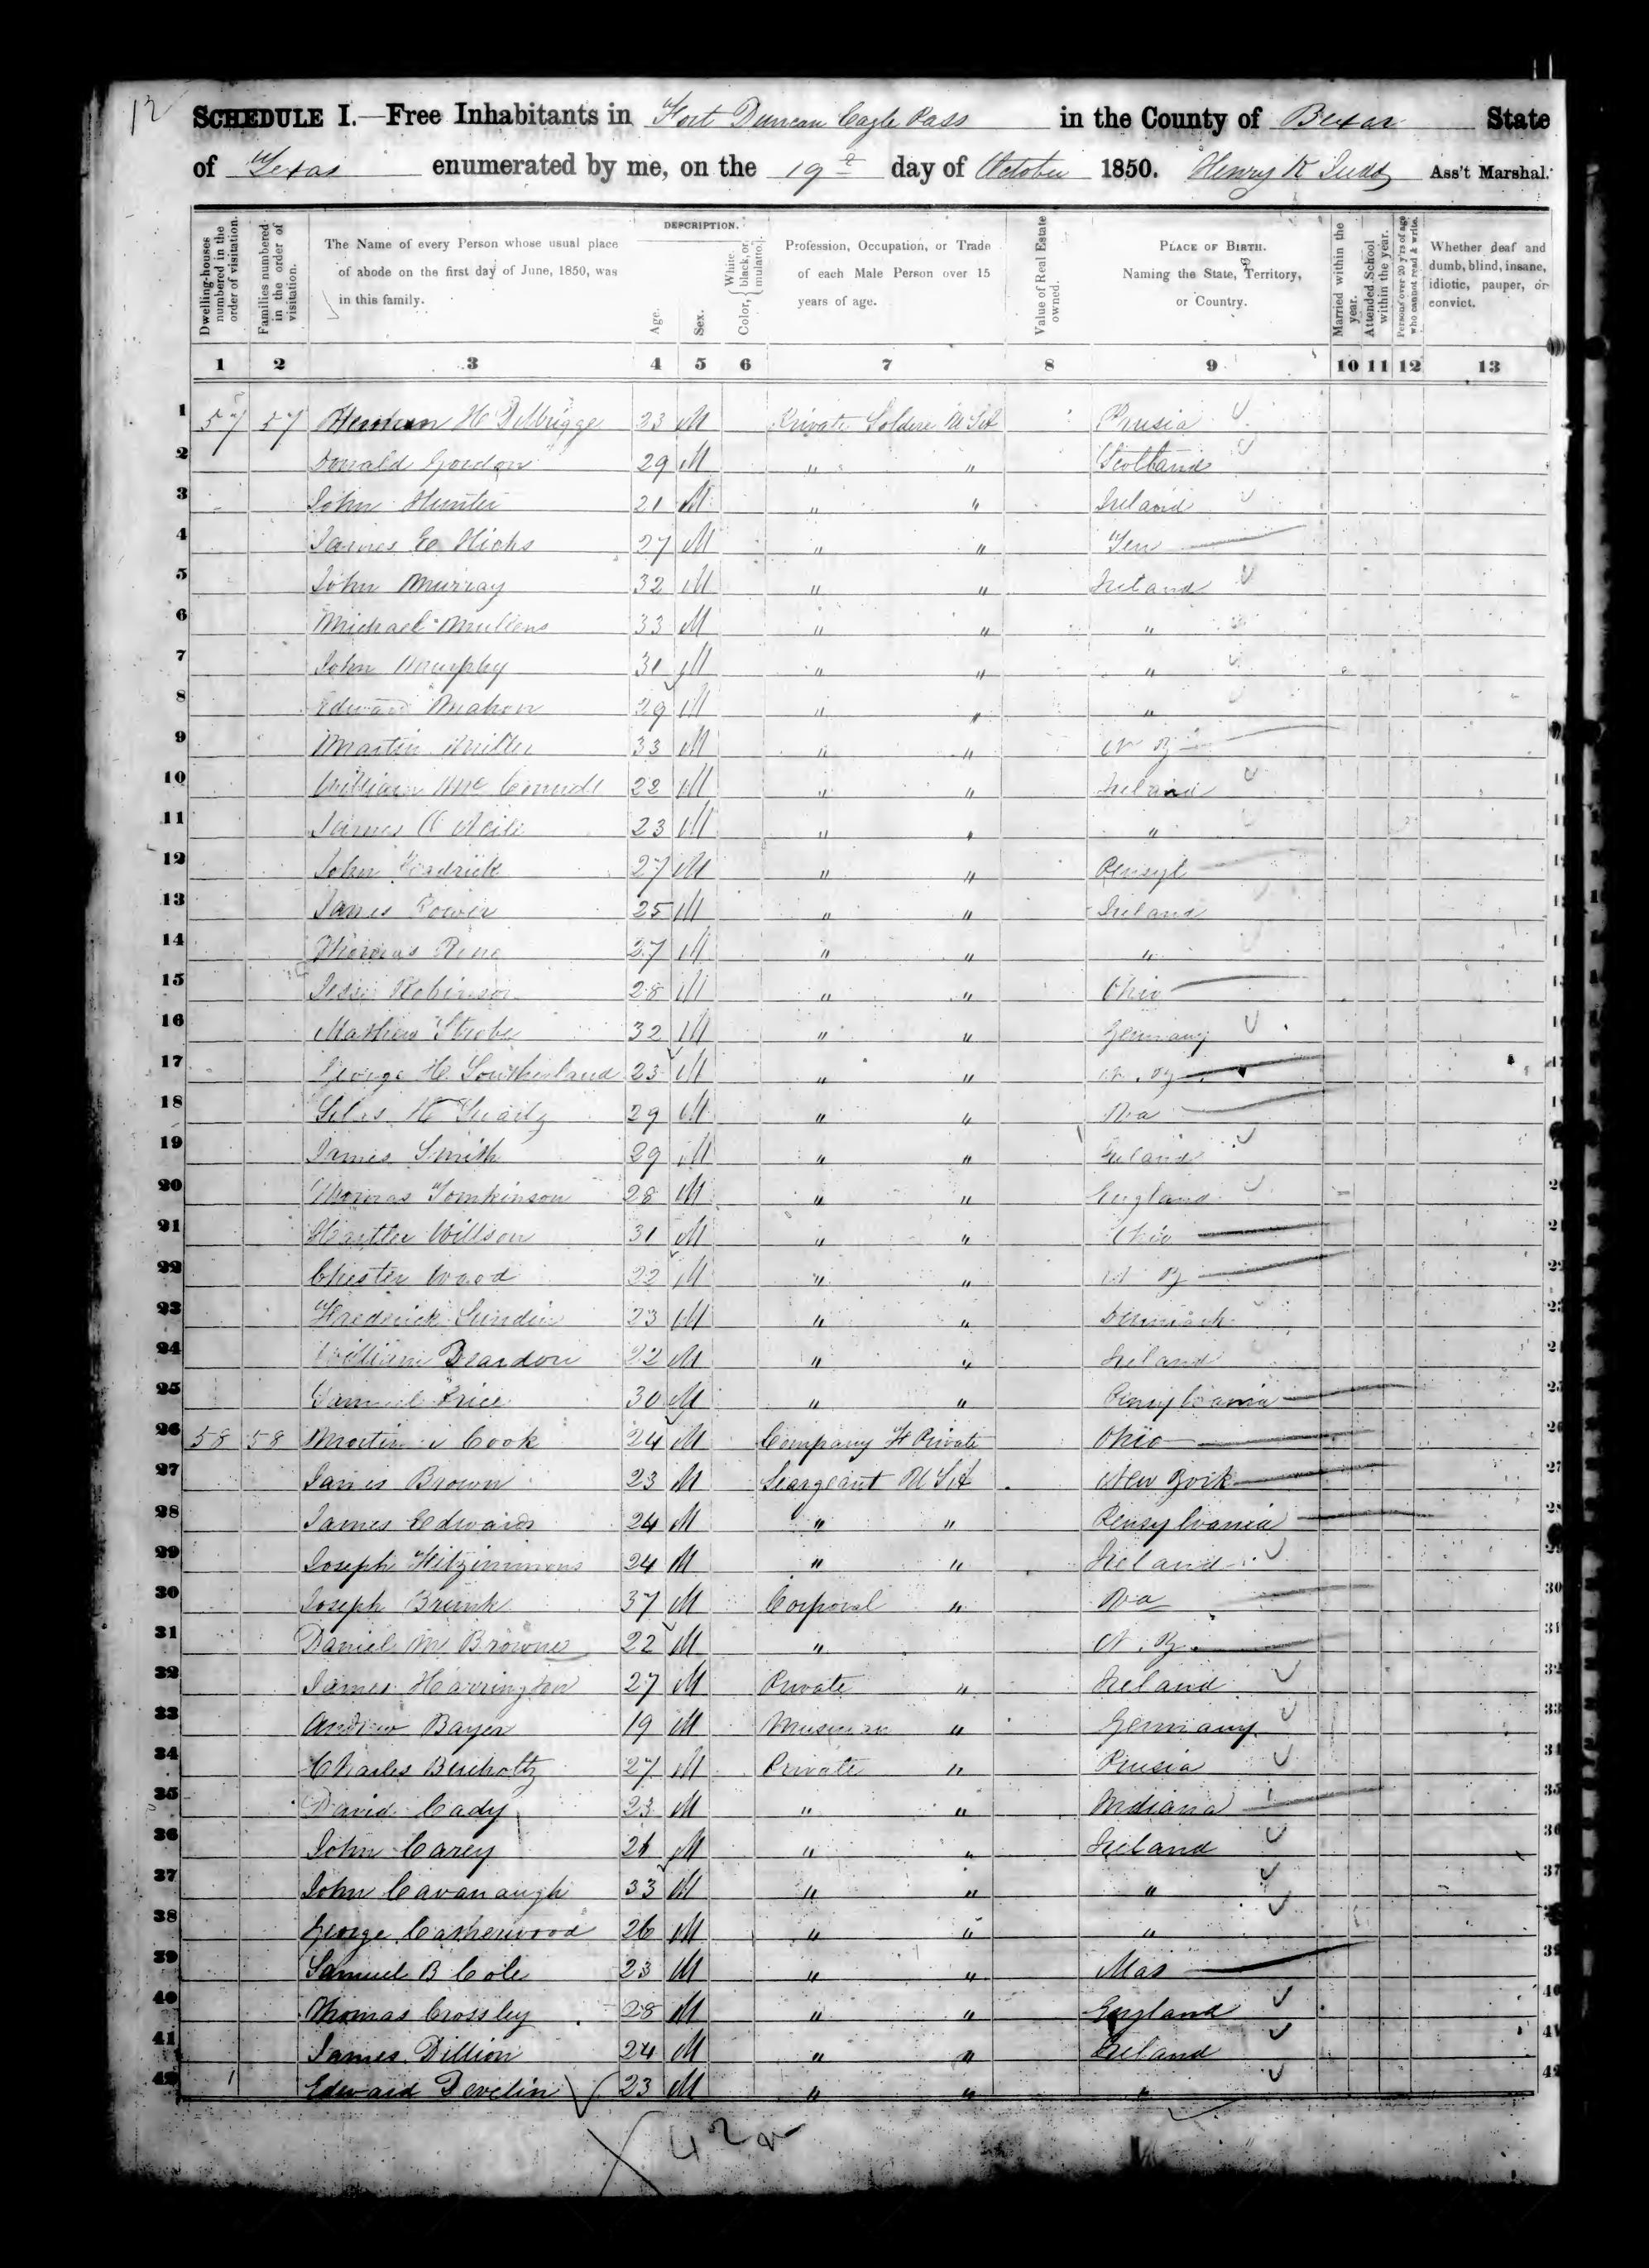 12
SCHEDULE I.—Free Inhabitants in Fort Duncan Eagle Pass in the County of Bexar State
of Texas enumerated by me, on the 19 day of October 1850. Henry K Judd Ass't Marshal.
Dwelling-houses numbered in the order of visitation.
Families numbered in the order of visitation.
The Name of every Person whose usual place of abode on the first day of June, 1850, was in this family.
DESCRIPTION.
Age.
Sex.
Color, White, black, or mulatto.
Profession, Occupation, or Trade of each Male Person over 15 years of age.
Value of Real Estate owned.
PLACE OF BIRTH. Naming the State, Territory, or Country.
Married within the year.
Attended School within the year.
Persons over 20 y'rs of age who cannot read & write.
Whether deaf and dumb, blind, insane, idiotic, pauper, or convict.
1 2 3 4 5 6 7 8 9 10 11 12 13
1 57 57 Herman H 23 M Private Soldier U S A Prusia
2 Donald Gordon 29 M " " Scotland
3 John Hunter 21 M " " Ireland
4 James E Hicks 27 M " " Ten
5 John Murray 32 M " " Ireland
6 Michael Mullens 33 M " " "
7 John Murphy 31 M " " "
8 Edward Mahon 29 M " " "
9 Martin Miller 33 M " " N Y
10 William 22 M " " Ireland
11 James O Neil 23 M " " "
12 John 27 M " " Pensyl
13 James Power 25 M " " Ireland
14 Thomas 27 M " " "
15 Jesse Robinson 28 M " " Ohio
16 Mathew Strobe 32 M " " Germany
17 George H. Southerland 23 M " " N. Y
18 H 29 M " " Va
19 James Smith 29 M " " Ireland
20 Thomas Tomkinson 28 M " " England
21 Willson 31 M " " Ohio
22 Chester Wood 22 M " " N Y
23 Frederick 23 M " " Denmark
24 William Deardon 22 M " " Ireland
25 Samuel Price 30 M " " Pennsylvania
26 58 58 Martin v Cook 24 M Company F Private Ohio
27 James Brown 23 M Seargeant U S A New York
28 James Edwards 24 M " " Pensylvania
29 Joseph Fitzimmons 24 M " " Ireland
30 Joseph Brunk 37 M Corporal " Va
31 Daniel M Browne 22 M " N. Y.
32 James Harrington 27 M Private " Ireland
33 Andrew Bayer 19 M Musician " Germany
34 Charles Bucholtz 27 M Private " Prusia
35 David Cady 23 M " " Indiana
36 John Carey 21 M " " Ireland
37 John Cavanaugh 33 M " " "
38 George Catherwood 26 M " " "
39 Samuel B Cole 23 M " " Mas
40 Thomas Crossley 28 M " " England
41 James Dillion 24 M " " Ireland
42 1 Edward Develin 23 M " " "
42